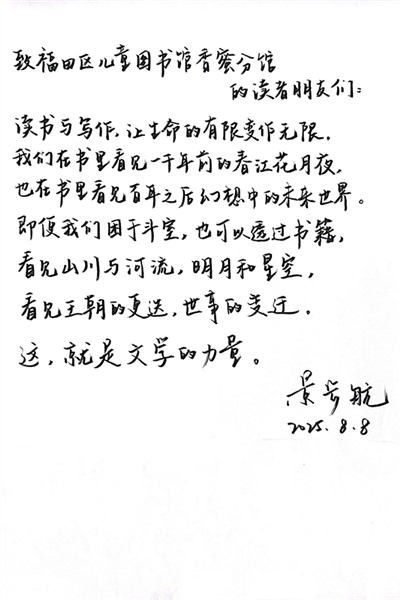 致福田区儿童图书馆香蜜分馆
的读者朋友们：
读书与写作，让生命的有限变作无限，
我们在书里看见一千年前的春江花月夜，
也在书里看见百年之后幻想中的未来世界。
即便我们困于斗室，也可以透过书籍，
看见山川与河流，明月和星空，
看见王朝的更迭，世事的变迁。
这，就是文学的力量。
景步航
2025.8.8